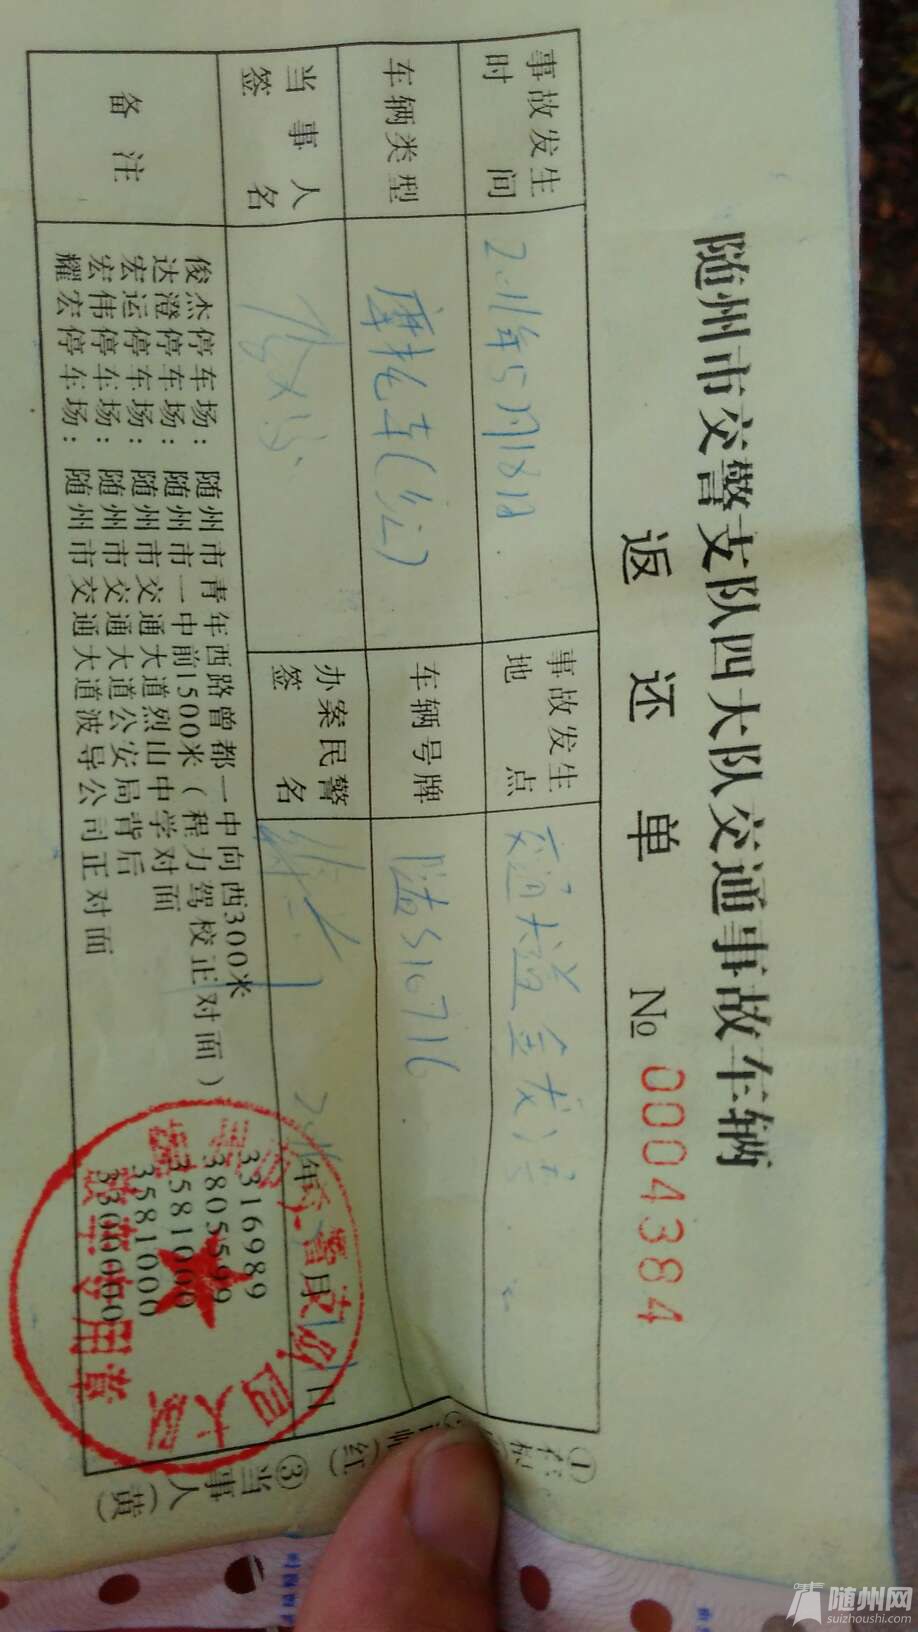 随州市交警支队四大队交通事故车辆
返还单 № 0004384
事故发生时间 2011年5月18日 事故发生地点 交通大道
车辆类型 摩托车 车辆号牌 随S10716
当事人签名 办案民警签名
年 月 日
备注
俊杰停车场: 随州市青年西路曾都一中向西300米 3316989
达澄停车场: 随州市一中前1500米(程力驾校正对面) 3805599
宏运停车场: 随州市交通大道烈山中学对面 3581000
宏伟停车场: 随州市交通大道公安局背后 3581000
耀宏停车场: 随州市交通大道波导公司正对面 3300000
四大队
专用章
①存根
(红)
③当事人(黄)
随州网
suizhoushi.com